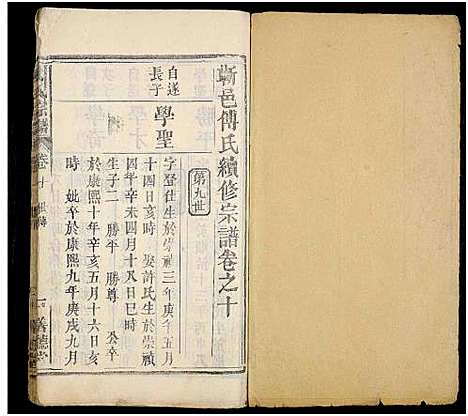 蘄邑傅氏續修宗譜卷之十
第九世
自遂
長子
學聖
字登仕生於崇禎三年庚午五月
十四日亥時 娶許氏生於崇禎
四年辛未四月十八日巳時
生子二 勝平 勝尊 癸卒
於康熙十年辛亥五月十六日亥
時 妣卒於康熙九年庚戌九月
卷十
一 義德堂